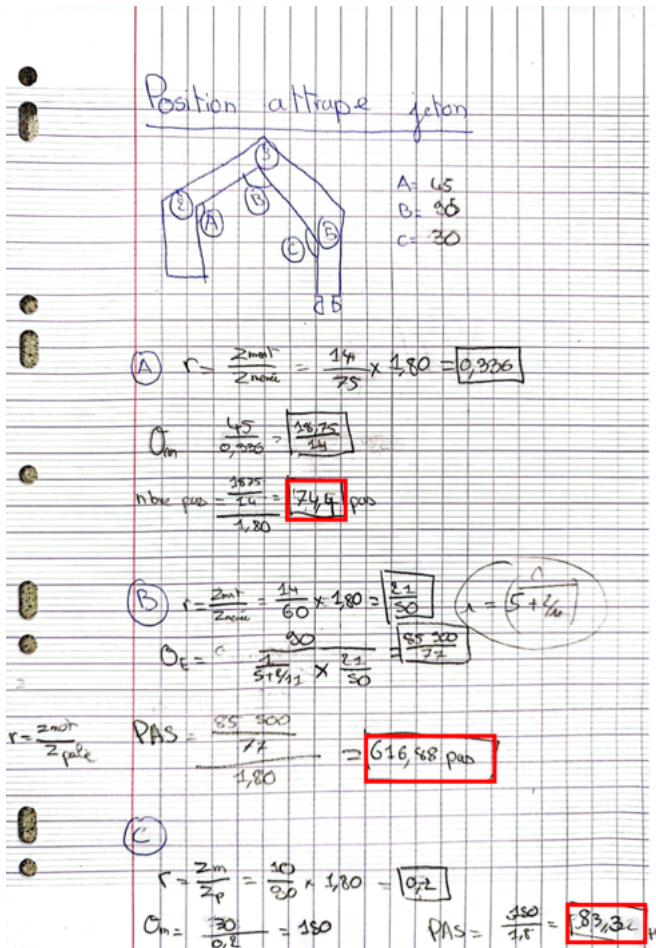 Position attrape jeton
2 A 3 B C 5
A= 45
B= 90
C= 30
A r = Zmot / Zmenée = 14/75 x 1,80 = 0,336
Om 45/0,336 = 18,75/14
nbre pas = 1875/14 / 1,80 = 74,4 pas
B r = Zmot / Zmenée = 14/60 x 1,80 = 21/50
θE = 90 / (1/(5+2/11) x 21/50) = 85 500/77
r = Zmot / Zpale
PAS = 85 500/77 / 1,80 = 616,88 pas
C
r = Zm/Zp = 10/90 x 1,80 = 0,2
Om = 30/0,2 = 150
PAS = 150/1,8 = 83,32